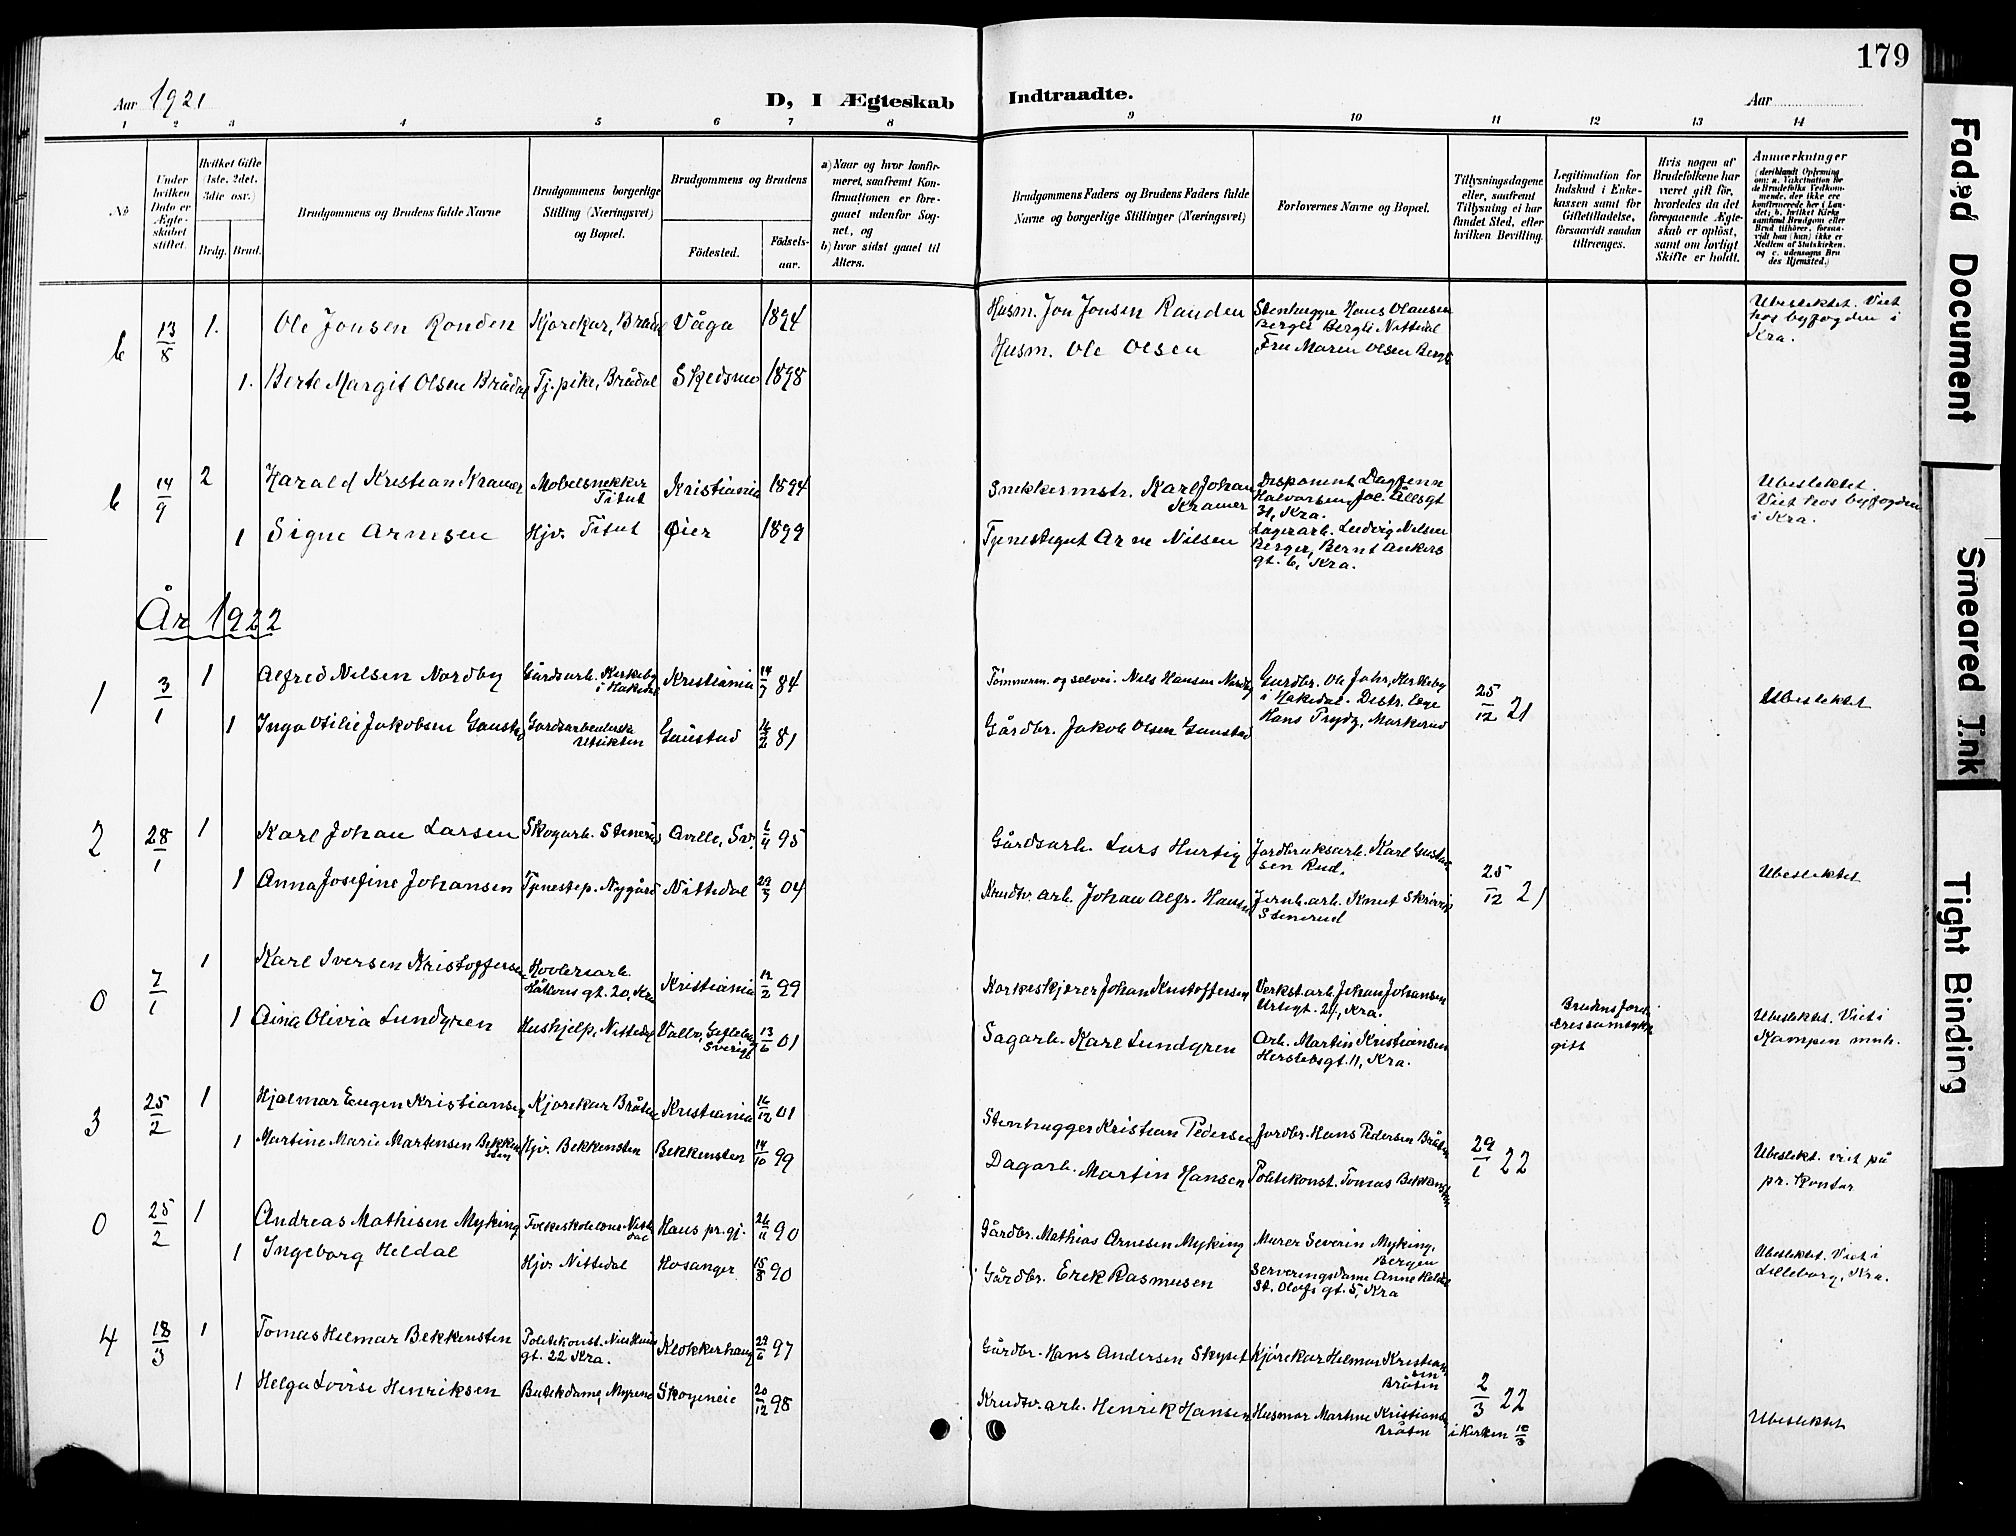 179
Aar 1921
D, I Ægteskab Indtraadte.
Aar
1 2 3 4 5 6 7 8 9 10 11 12 13 14
No
Under hvilken Dato er Ægteskabet stiftet.
Hvilket Gifte (1ste, 2det, 3die osv.)
Brdg. Brud.
Brudgommens og Brudens fulde Navne
Brudgommens borgerlige Stilling (Næringsvei) og Bopæl.
Brudgommens og Brudens
Födested.
Födselsaar.
a) Naar og hvor konfirmeret, saafremt Konfirmationen er foregaaet udenfor Sognet, og
b) hvor sidst gaaet til Alters.
Brudgommens Faders og Brudens Faders fulde Navne og borgerlige Stillinger (Næringsvei)
Forlovernes Navne og Bopæl.
Tillysningsdagene eller, saafremt Tillysning ei har fundet Sted, efter hvilken Bevilling.
Legitimation for Indskud i Enkekassen samt for Giftetilladelse, forsaavidt saadan tiltrænges.
Hvis nogen af Brudefolkene har været gift för, hvorledes da det foregaaende Ægteskab er oplöst, samt om lovligt Skifte er holdt.
Anmerkninger
(deriblandt Oplysning om: a. Vakcination for de Brudefolks Vedkommende, der ikke ere konfirmerede her i Landet; b. hvilket Kirkesamfund Brudgom eller Brud tilhörer, forsaavidt han (hun) ikke er Medlem af Statskirken, og c. udensogns Brudes Hjemsted.)
6 13/8 1. Ole Jonsen Ronden Kjørekar, Brådal Våga 1894 Husm. Jon Jonsen Randen Stenhugger Hans Olausen Berger Bergli Nittedal Ubeslektet. Viet hos byfogden i Kra.
1. Berte Margit Olsen Brådal Tj.pike, Brådal Skedsmo 1898 Husm. Ole Olsen Fru Maren Olsen Bergli
6 14/9 2 Harald Kristian Kramer Møbelsnekker Titut Kristiania 1894 Snekkermstr. Karl Johan Kramer Disponent Dagfinn Halvorsen, Jac. Allsgt 31, Kra. Ubeslektet. Viet hos byfogden i Kra.
1 Signe Arnesen Hjv. Titut Øier 1899 Tjenestegut Arne Nilsen Lagerarb. Ludvig Nilsen Berger, Bernt Ankers gt. 6, Kra.
År 1922
1 3/1 1 Alfred Nilsen Nordby Gårdsarb. Kirkeby i Hakedal Kristiania 14/7 84 Tømmerm. og selvei. Nils Hansen Nordby Gardbr. Ole Johs. Kirkeby i Hakedal. Distr. læge 25/12 21 Ubeslektet
1 Inga Otilie Jakobsen Gaustad Gardsarbeiderske Utsikten Gaustad 16/2 81 Gårdbr. Jakob Olsen Gaustad Hans Prydz, Markerud
2 28/1 1 Karl Johan Larsen Skogarb. Stenerud Arille, Sv. 6/4 95 Gårdsarb. Lars Hurtig Jordbruksarb. Karl Gustavsen Rud. 25/12 21 Ubeslektet
1 Anna Josefine Johansen Tjenestep. Nygård Nittedal 29/7 04 Krudtv. arb. Johan Alfr. Hansen Jernb. arb. Knut Skrøvik Stenerud
0 7/1 1 Karl Iversen Kristoffersen Hovleriarb. Håkons gt. 20, Kra Kristiania 12/2 99 Korkeskjærer Johan Kristoffersen Verkst. arb. Johan Johansen Urtegt. 21, Kra. Brudens foreldres samtykke gitt Ubeslektet. Viet i Kampen mnh.
1 Aina Olivia Lundgren Hushjelp, Nittedal Valbo, Gefleborg Sverige 13/6 01 Sagarb. Karl Lundgren Arb. Martin Kristiansen Herslebsgt. 11, Kra.
3 25/2 1 Hjalmar Eugen Kristiansen Kjørekar Bråten Kristiania 16/12 01 Stenhugger Kristian Pedersen Jordbr. Hans Pedersen Bråten 29/1 22 Ubeslekt. viet på pr. kontor
1 Martine Marie Martensen Bekkensten Hjv. Bekkensten Bekkensten 14/10 99 Dagarb. Martin Hansen Politikonst. Tomas Bekkensten
0 25/2 1 Andreas Mathisen Myking Folkeskolelærer Nittedal Haus pr.gj. 26/11 90 Gårdbr. Mathias Arnesen Myking Murer Severin Myking, Bergen Ubeslektet. Viet i Lilleborg, Kra.
1 Ingeborg Heldal Hjv. Nittedal Hosanger 15/8 90 Gårdbr. Erik Rasmusen Serveringsdame Anne Heldal St. Olafs gt. 5, Kra
4 18/3 1 Tomas Hilmar Bekkensten Politikonst. Niels Huus gt. 22 Kra. Klokkerhaug 29/6 97 Gårdbr. Hans Andersen Skyset Kjørekar Hilmar Kristiansen Bråten 2/3 22 Ubeslektet
1 Helga Lovise Henriksen Butikdame, Myrene Skogeneie 20/12 98 Krudtv. arb. Henrik Hansen Husmor Martine Kristians. Bråten i Kirken 18/3
Faded Document
Smeared Ink
Tight Binding